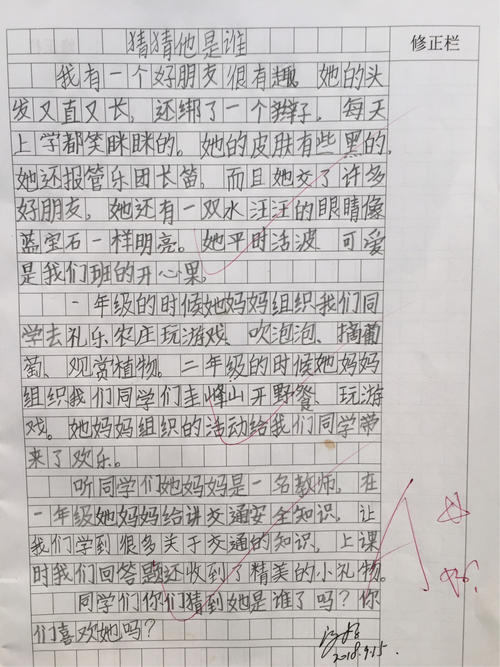 猜猜他是谁
修正栏
我有一个好朋友很有趣。她的头
发又直又长，还绑了一个辫子。每天
上学都笑眯眯的。她的皮肤有些黑的，
她还报管乐团长笛，而且她交了许多
好朋友，她还有一双水汪汪的眼睛像
蓝宝石一样明亮。她平时活波 可爱
是我们班的开心果。
一年级的时候她妈妈组织我们同
学去礼乐农庄玩游戏、吹泡泡、摘葡
萄、观赏植物。二年级的时候她妈妈
组织我们同学们圭峰山开野餐、玩游
戏。她妈妈组织的活动给我们同学带
来了欢乐。
听同学们她妈妈是一名教师，在
一年级她妈妈给讲交通安全知识，让
我们学到很多关于交通的知识，上课
时我们回答题还收到了精美的小礼物。
同学们你们猜到她是谁了吗？你
们喜欢她吗？
A
2018.9.15.